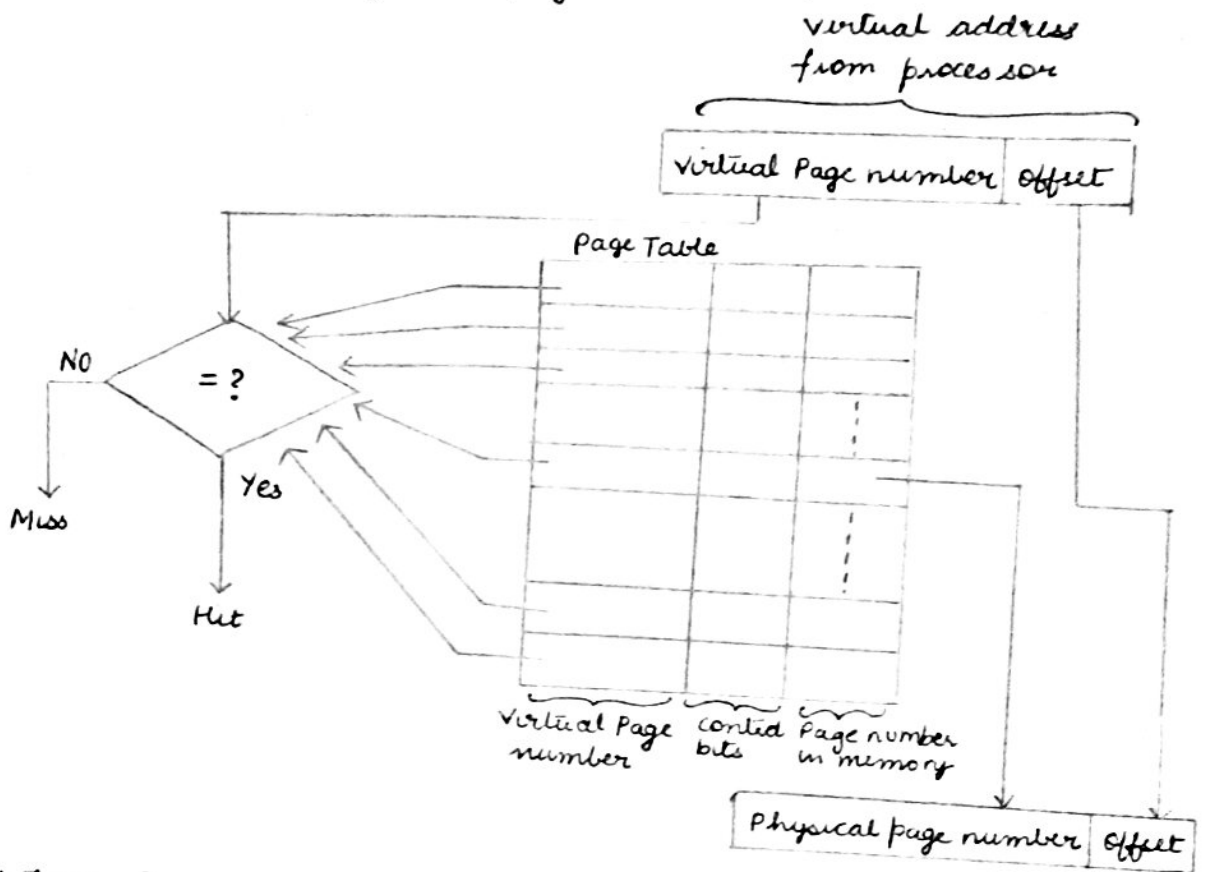 virtual address
from processor
virtual Page number offset
Page Table
NO
= ?
Yes
Miss
Hit
Virtual Page
number
bits
Page number
in memory
Physical page number offset